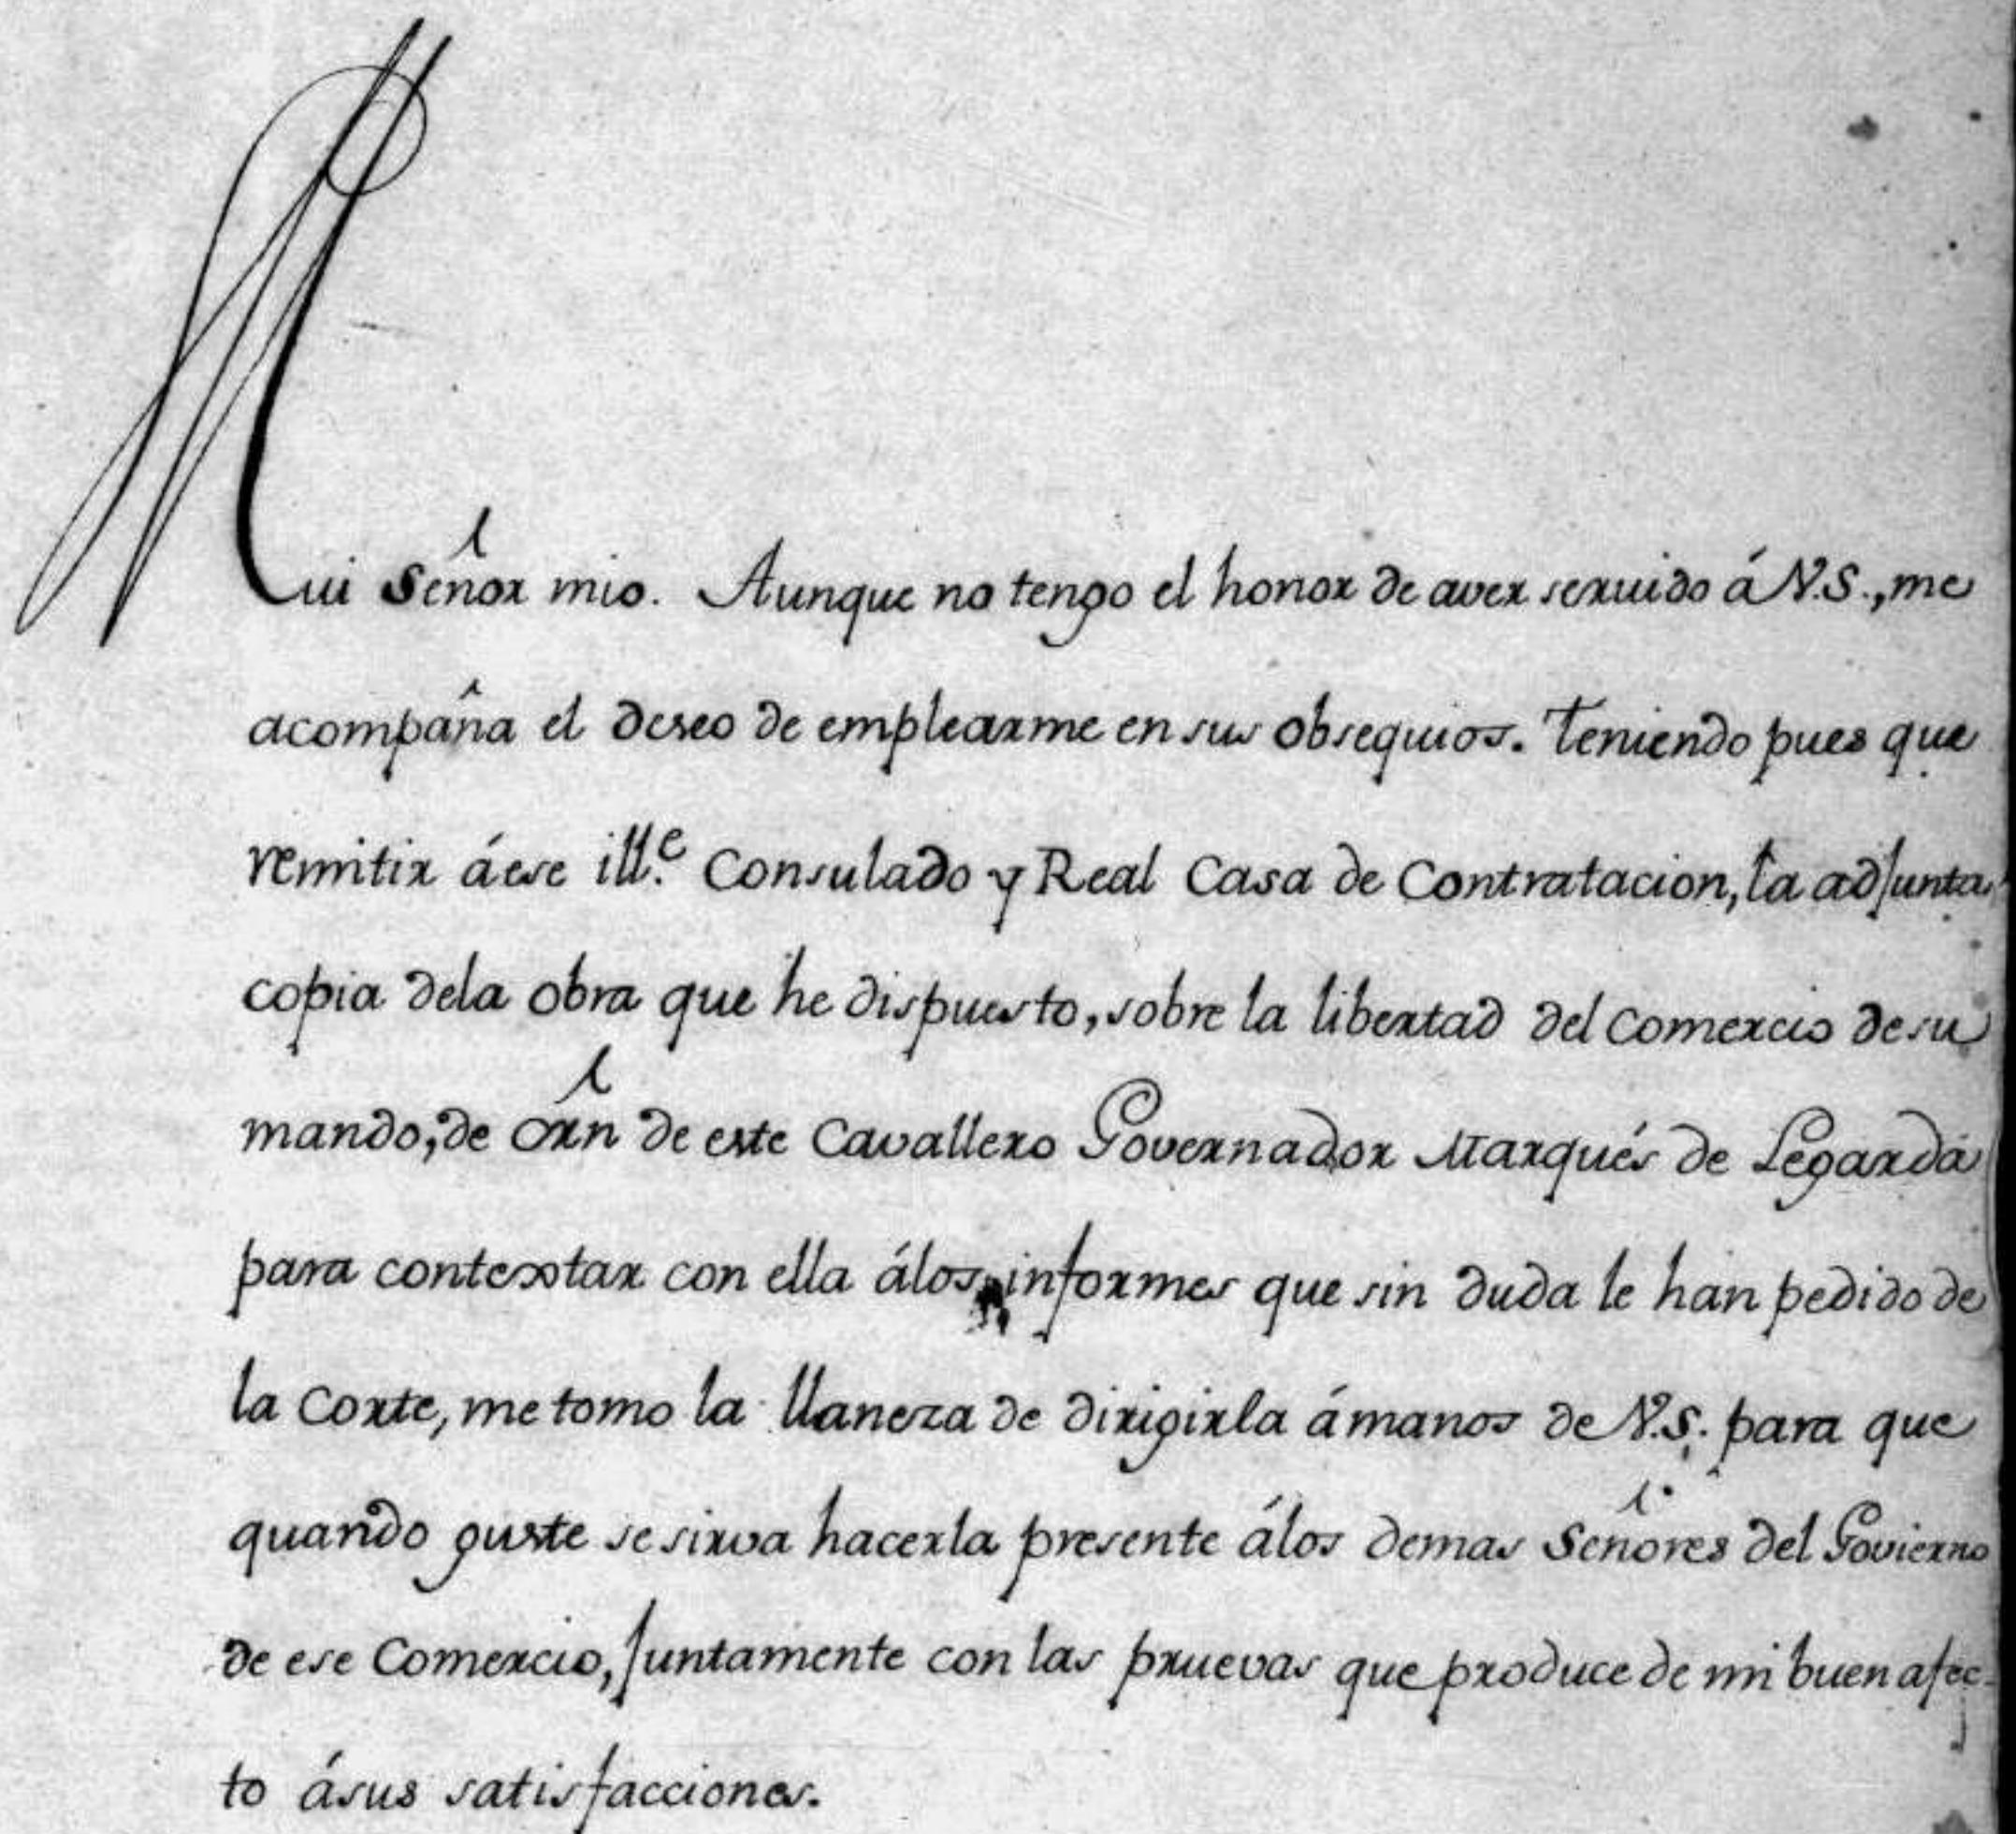 Mui Señor mio. Aunque no tengo el honor de aver servido á V.S., me
acompaña el deseo de emplearme en sus obsequios. Teniendo pues que
remitir áese ill.e Consulado y Real Casa de Contratacion, la adjunta
copia dela obra que he dispuesto, sobre la libertad del Comercio desu
mando, de orñ de este Cavallero Governador Marqués de Legarda
para contextar con ella álos informes que sin duda le han pedido de
la Corte, me tomo la llaneza de dirigirla ámanos de V.S. para que
quando guste se sirva hacerla presente álos demas Señores del Govierno
de ese Comercio, juntamente con las pruevas que produce de mi buen afec-
to ásus satisfacciones.